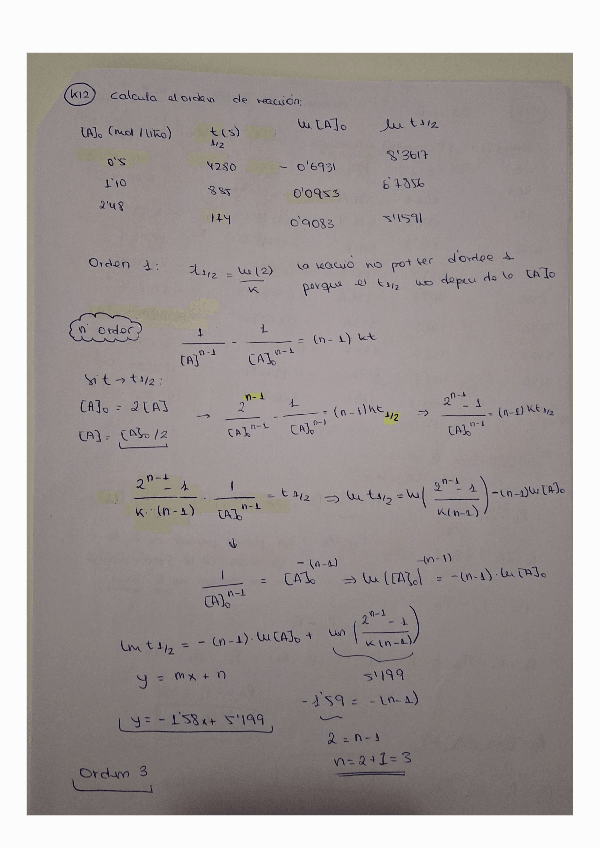 K12 Calcula el orden de reacción:
[A]₀ (mol / litro) t (s) 1/2 ln [A]₀ ln t 1/2
0'5 4280 - 0'6931 8'3617
1'10 885 0'0953 6'7856
2'48 174 0'9083 5'1591
Orden 1: t 1/2 = ln(2) / K la reació no pot ser d'ordre 1
porque el t 1/2 no depen de la [A]₀
n orden 1/[A]ⁿ⁻¹ - 1/[A]₀ⁿ⁻¹ = (n-1) kt
Si t → t 1/2 :
[A]₀ = 2[A] → 2ⁿ⁻¹/[A]₀ⁿ⁻¹ - 1/[A]₀ⁿ⁻¹ = (n-1) k t 1/2 ⇒ 2ⁿ⁻¹ - 1/[A]₀ⁿ⁻¹ = (n-1) k t 1/2
[A] = [A]₀/2
2ⁿ⁻¹ - 1/K · (n-1) · 1/[A]₀ⁿ⁻¹ = t 1/2 ⇒ ln t 1/2 = ln (2ⁿ⁻¹ - 1/K(n-1)) - (n-1) ln [A]₀
↓
1/[A]₀ⁿ⁻¹ = [A]₀^-(n-1) ⇒ ln ([A]₀)^-(n-1) = -(n-1) · ln [A]₀
ln t 1/2 = - (n-1) · ln [A]₀ + ln (2ⁿ⁻¹ - 1/K(n-1))
y = mx + n 5'199
- 1'59 = - (n-1)
y = - 1'58x + 5'199
2 = n-1
n = 2 + 1 = 3
Orden 3